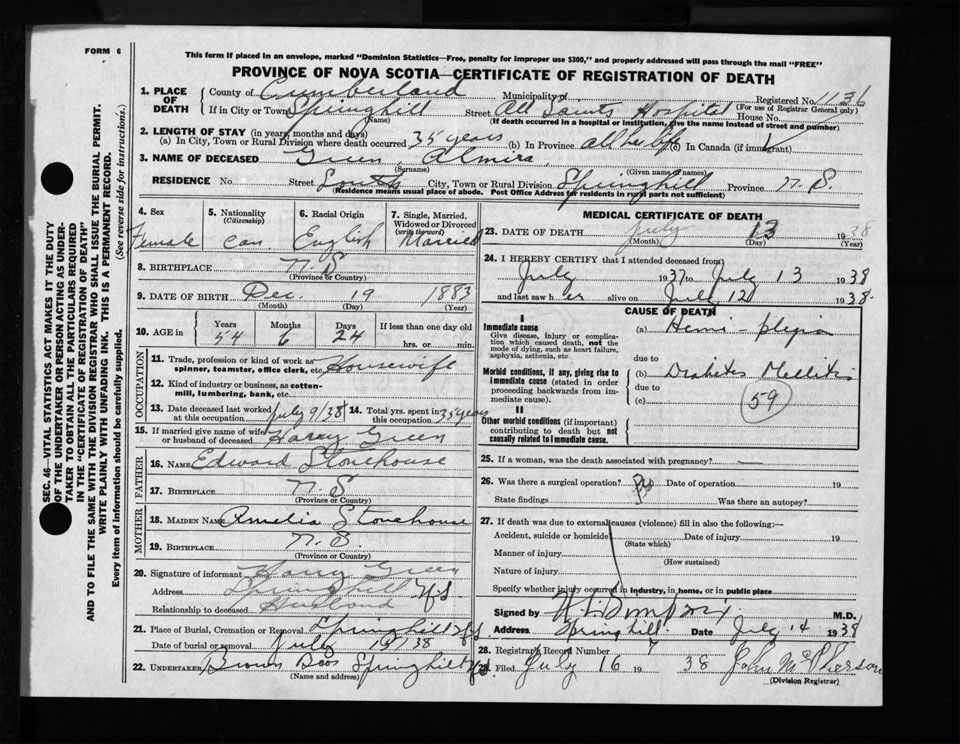 FORM 6
This form if placed in an envelope, marked "Dominion Statistics—Free, penalty for improper use $300," and properly addressed will pass through the mail "FREE"
PROVINCE OF NOVA SCOTIA—CERTIFICATE OF REGISTRATION OF DEATH
1. PLACE OF DEATH
County of Cumberland Municipality of Registered No. 1136
(For use of Registrar General only)
If in City or Town Springhill Street All Saints Hospital House No.
(Name) (If death occurred in a hospital or institution, give the name instead of street and number)
2. LENGTH OF STAY (in years, months and days)
(a) In City, Town or Rural Division where death occurred 35 years (b) In Province all her life (c) In Canada (if immigrant)
3. NAME OF DECEASED Green, Almira
(Surname) (Given name or names)
RESIDENCE No. Street South City, Town or Rural Division Springhill Province N. S.
(Residence means usual place of abode. Post Office Address for residents in rural parts not sufficient)
4. Sex Female
5. Nationality (Citizenship) Can.
6. Racial Origin English
7. Single, Married, Widowed or Divorced (write the word) Married
8. BIRTHPLACE N. S
(Province or Country)
9. DATE OF BIRTH Dec. 19 1883
(Month) (Day) (Year)
10. AGE in Years 54 Months 6 Days 24 If less than one day old hrs. or min.
OCCUPATION
11. Trade, profession or kind of work as spinner, teamster, office clerk, etc. Housewife
12. Kind of industry or business, as cotton-mill, lumbering, bank, etc.
13. Date deceased last worked at this occupation July 9/38 14. Total yrs. spent in this occupation 35 years
15. If married give name of wife or husband of deceased Harry Green
FATHER
16. NAME Edward Stonehouse
17. BIRTHPLACE N. S
(Province or Country)
MOTHER
18. MAIDEN NAME Amelia Stonehouse
19. BIRTHPLACE N. S.
(Province or Country)
20. Signature of informant Harry Green
Address Springhill N.S
Relationship to deceased Husband
21. Place of Burial, Cremation or Removal Springhill N.S
Date of burial or removal July 1938
22. UNDERTAKER Brown Bros Springhill N.S.
(Name and address)
MEDICAL CERTIFICATE OF DEATH
23. DATE OF DEATH July 13 1938
(Month) (Day) (Year)
24. I HEREBY CERTIFY that I attended deceased from
July 1937 to July 13 1938
and last saw her alive on July 12 1938.
CAUSE OF DEATH
I
Immediate cause
Give disease, injury or complication which caused death, not the mode of dying, such as heart failure, asphyxia, asthenia, etc
(a) Hemi-plegia
due to
Morbid conditions, if any, giving rise to immediate cause (stated in order proceeding backwards from immediate cause).
(b) Diabetes Mellitis
due to
(c) 59
II
Other morbid conditions (if important) contributing to death but not causally related to immediate cause.
25. If a woman, was the death associated with pregnancy?
26. Was there a surgical operation? No Date of operation 19
State findings Was there an autopsy?
27. If death was due to external causes (violence) fill in also the following:—
Accident, suicide or homicide Date of injury 19
(State which)
Manner of injury
(How sustained)
Nature of injury
Specify whether injury occurred in industry, in home, or in public place
Signed by M.D.
Address Springhill. Date July 14 1938
28. Registrar's Record Number 7
Filed July 16 1938 John McPherson
(Division Registrar)
SEC. 46—VITAL STATISTICS ACT MAKES IT THE DUTY
OF THE UNDERTAKER OR PERSON ACTING AS UNDER-
TAKER TO OBTAIN ALL THE PARTICULARS REQUIRED
IN THE "CERTIFICATE OF REGISTRATION OF DEATH"
AND TO FILE THE SAME WITH THE DIVISION REGISTRAR WHO SHALL ISSUE THE BURIAL PERMIT.
WRITE PLAINLY WITH UNFADING INK. THIS IS A PERMANENT RECORD.
Every item of information should be carefully supplied. (See reverse side for instructions.)